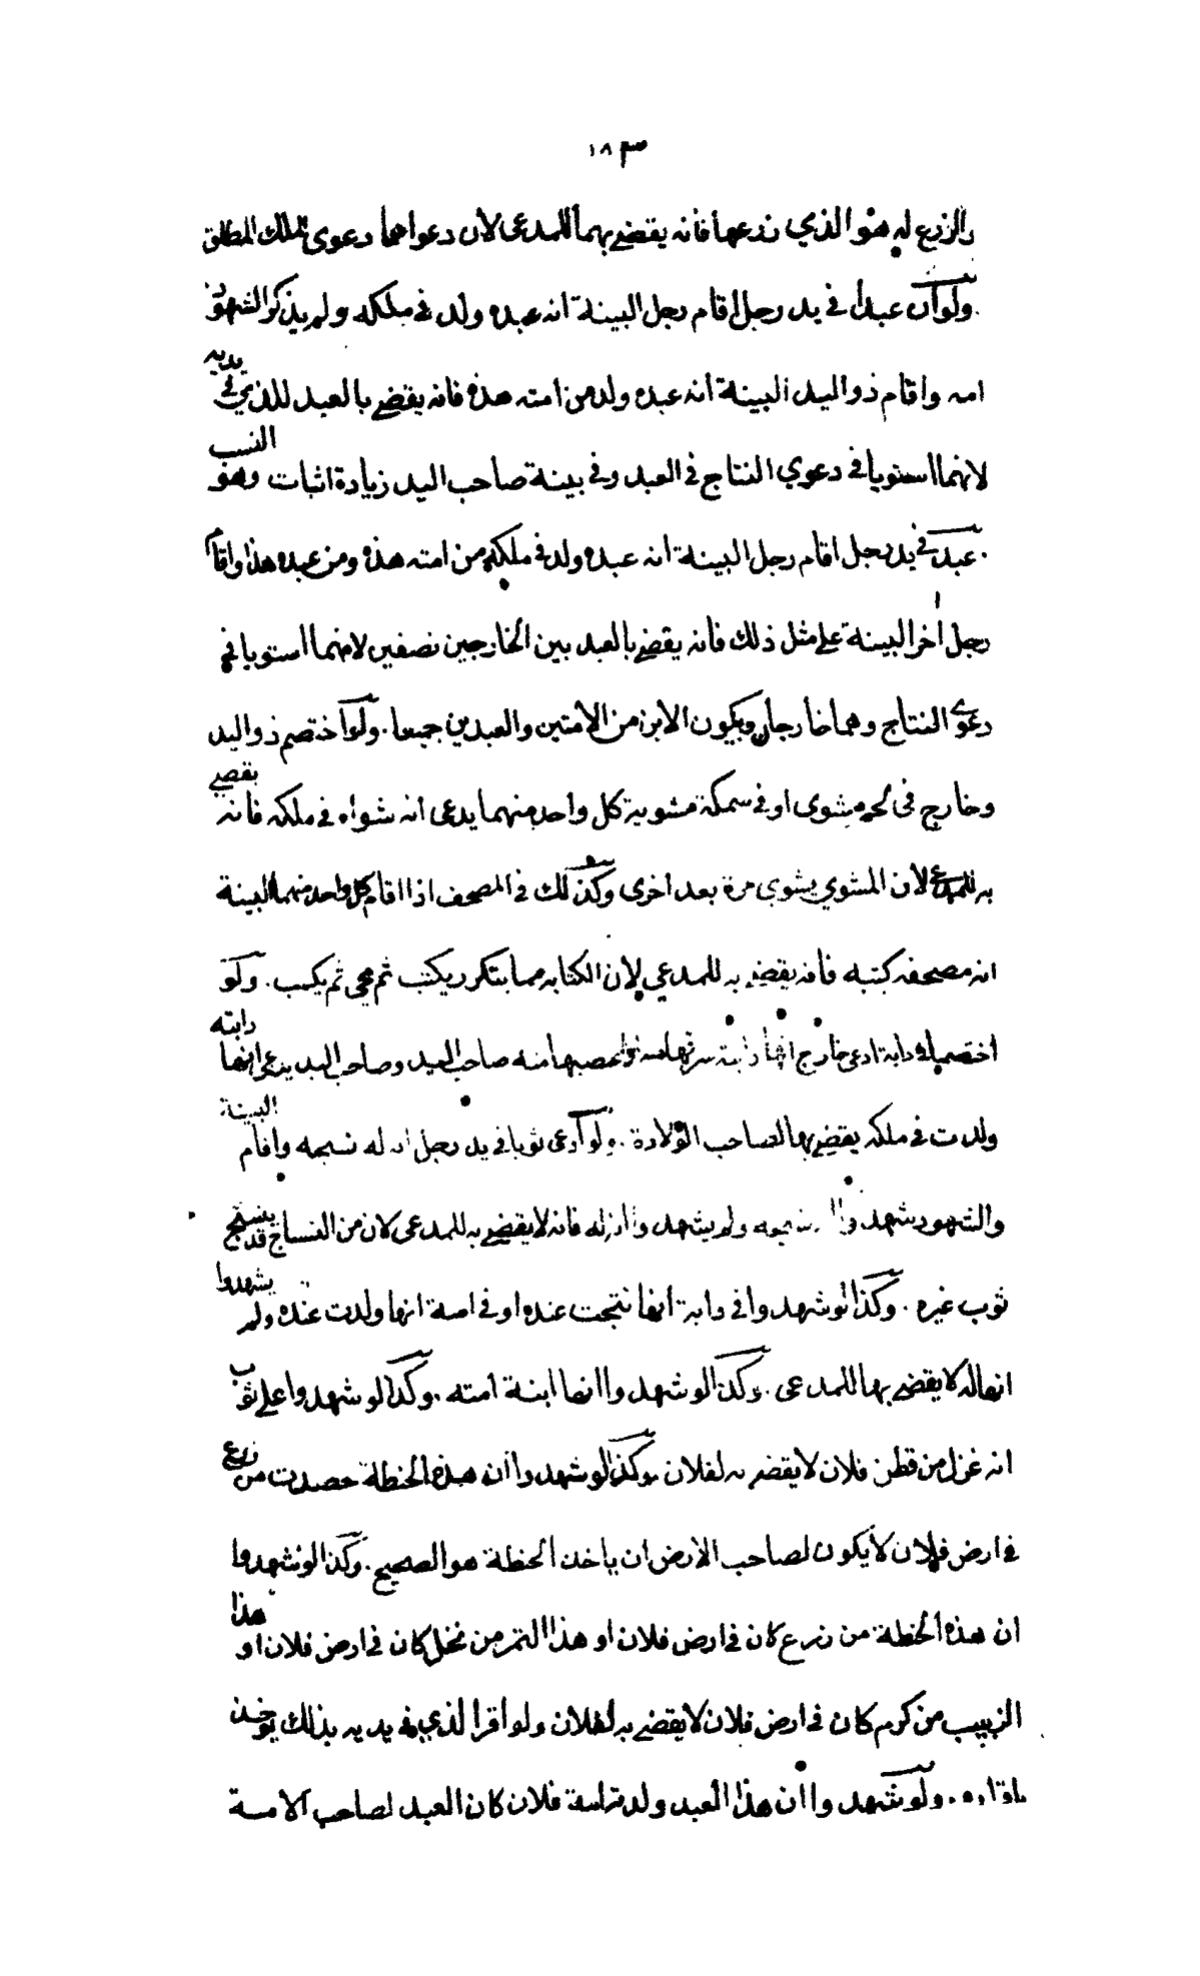 ١٨٣
والزرع له هو الذي زرعها فانه يقضي بهما للمدعى لان دعواهما دعوى الملك المطلق
ولو ان عبدا في يد رجل اقام رجل البينة انه عبده ولد في ملكه ولم يذكر الشهود
امه واقام ذو اليد البينة انه عبده ولد من امته هذه فانه يقضي بالعبد للذي في يديه
لانهما استويا في دعوي النتاج في العبد وفي بينة صاحب اليد زيادة اثبات وهو النسب
عبد في يد رجل اقام رجل البينة انه عبده ولد في ملكه من امته هذه ومن عبده هذا واقام
رجل اخر البينة على مثل ذلك فانه يقضي بالعبد بين الخارجين نصفين لانهما استويا في
دعوي النتاج وهما خارجان ويكون الابن من الامتين والعبدين جميعا . ولو اختصم ذو اليد
وخارج في لحم مشوى او في سمكة مشوية كل واحد منهما يدعى انه شواه في ملكه فانه يقضي
به للمدعي لان المشوي يشوى مرة بعد اخرى وكذلك في المصحف اذا اقام كل واحد منهما البينة
انه مصحفه كتبه فانه يقضي به للمدعي لان الكتابه مما يتكرر يكتب ثم يمحى ثم يكتب . ولو
اختصما في دابة ادعى خارج انها دابته سرقها منه او غصبها منه صاحب اليد وصاحب اليد يدعي انها دابته
ولدت في ملكه يقضي بها لصاحب الولادة . ولو ادعى ثوبا في يد رجل انه له نسجه واقام البينة
والشهود شهدوا نسجه ولم يشهدوا انه له فانه لا يقضي به للمدعى لان من النساج قد ينسج
ثوب غيره . وكذا لو شهدوا في دابة انها نتجت عنده او في امة انها ولدت عنده ولم يشهدوا
انها له لا يقضي بها للمدعى . وكذا لو شهدوا انها ابنة امته . وكذا لو شهدوا على ثوب
انه غزل من قطن فلان لا يقضي به لفلان وكذا لو شهدوا ان هذه الحنطة حصدت من زرع
في ارض فلان لا يكون لصاحب الارض ان ياخذ الحنطة هو الصحيح . وكذا لو شهدوا
ان هذه الحنطة من زرع كان في ارض فلان او هذا التمر من نخل كان في ارض فلان او هذا
الزبيب من كرم كان في ارض فلان لا يقضي به لفلان ولو اقر الذي في يديه بذلك يوخذ
باقراره . ولو شهدوا ان هذا العبد ولدته امة فلان كان العبد لصاحب الامة